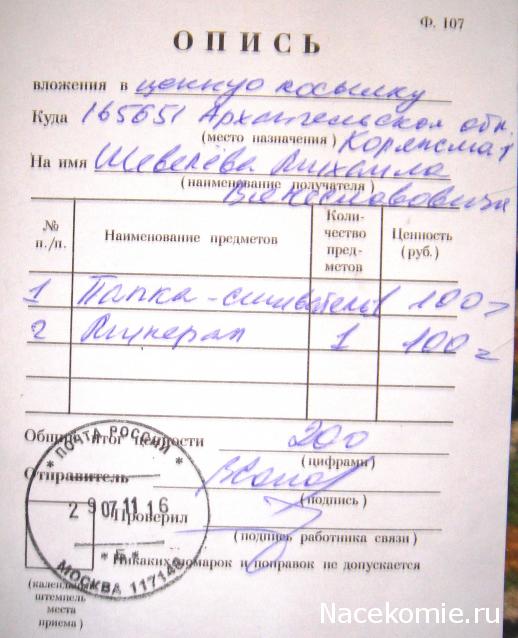 Ф. 107
ОПИСЬ
вложения в ценную посылку
Куда 165651 Архангельская обл.
(место назначения) Коряжма,
На имя Шевелёва Михаила
(наименование получателя) Вячеславовича
№ п./п. Наименование предметов Коли-чество пред-метов Ценность (руб.)
1 Папка-сшиватель 1 100=
2 Минерал 1 100=
Общий итог ценности 200
(цифрами)
Отправитель
(подпись)
Проверил
(подпись работника связи)
Никаких помарок и поправок не допускается
(календарный
штемпель
места
приема)
* ПОЧТА РОССИИ *
29 07 11 16
* Б *
МОСКВА 117149
Nacekomie.ru